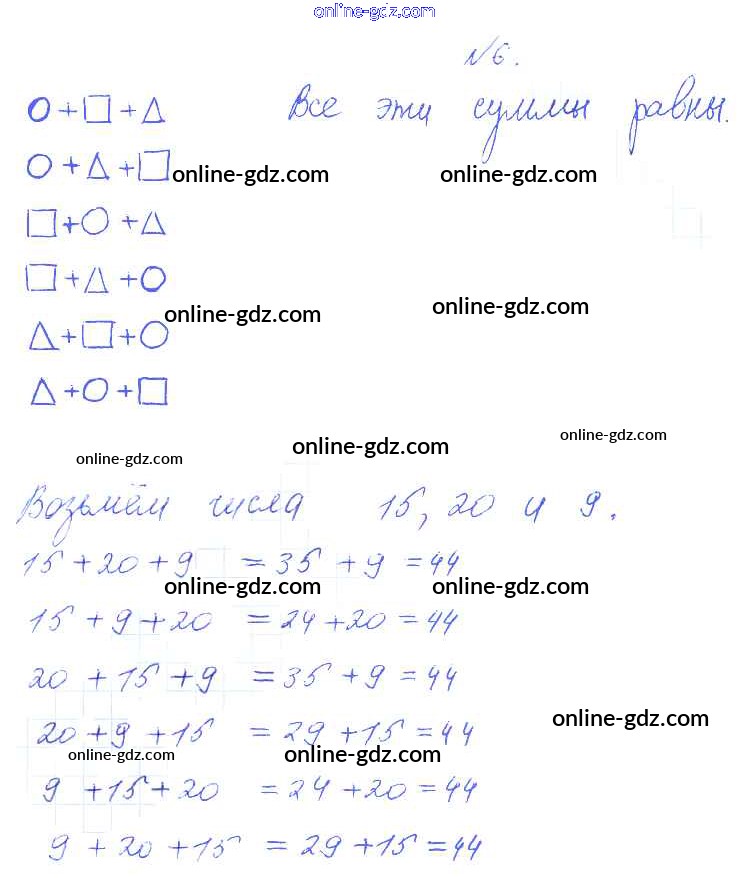 online-gdz.com
№6.
○ + □ + △ Все эти суммы равны.
○ + △ + □
online-gdz.com online-gdz.com
□ + ○ + △
□ + △ + ○
online-gdz.com online-gdz.com
△ + □ + ○
△ + ○ + □
online-gdz.com online-gdz.com
online-gdz.com
Возьмём числа 15, 20 и 9.
15 + 20 + 9 = 35 + 9 = 44
online-gdz.com online-gdz.com
15 + 9 + 20 = 24 + 20 = 44
20 + 15 + 9 = 35 + 9 = 44
online-gdz.com
20 + 9 + 15 = 29 + 15 = 44
online-gdz.com online-gdz.com
9 + 15 + 20 = 24 + 20 = 44
9 + 20 + 15 = 29 + 15 = 44